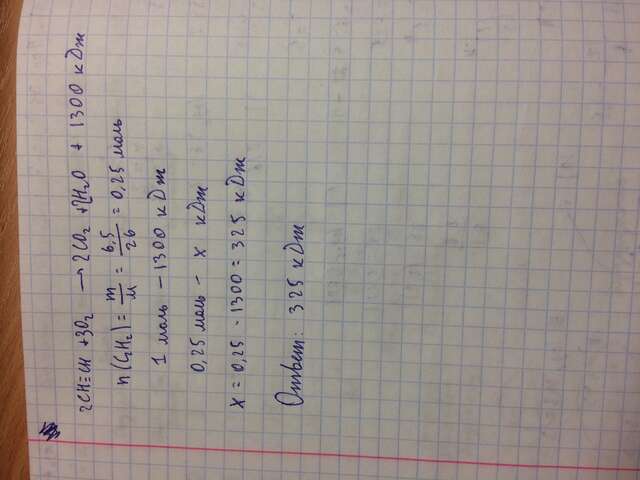 2CH≡CH + 3O₂ → 2CO₂ + 2H₂O + 1300 кДж
n(C₂H₂) = m/M = 6,5/26 = 0,25 моль
1 моль - 1300 кДж
0,25 моль - x кДж
x = 0,25 · 1300 = 325 кДж
Ответ: 325 кДж